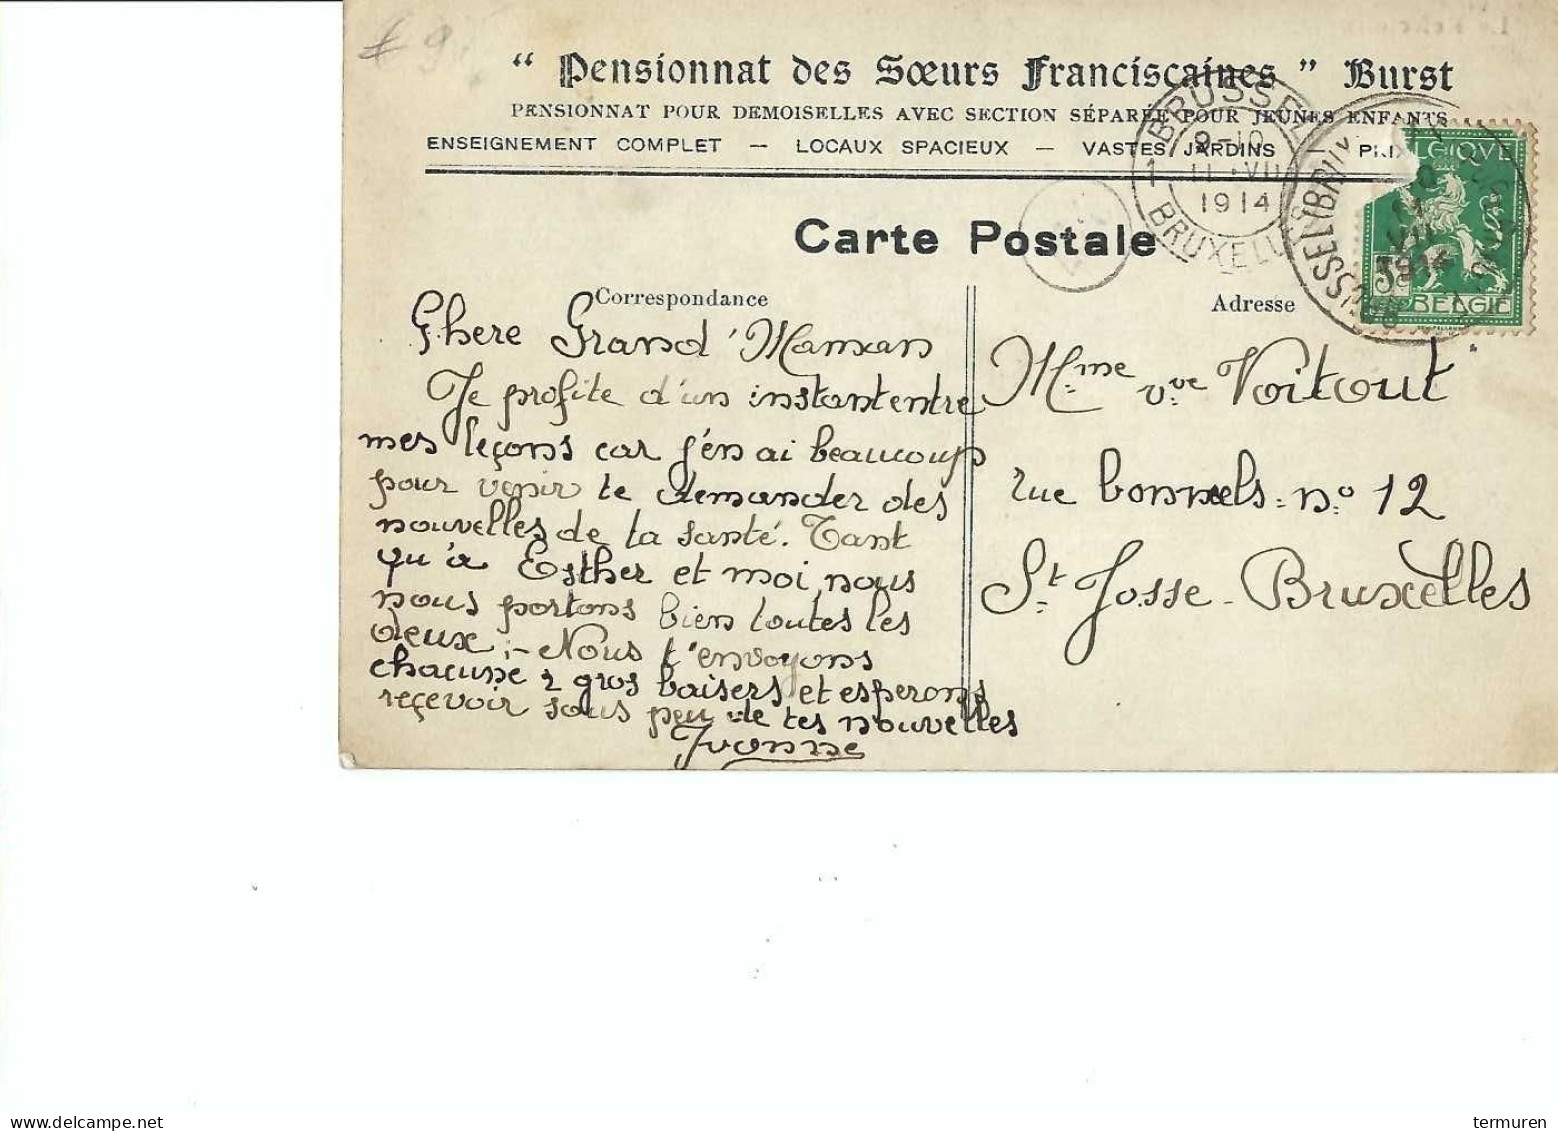 € 9
" Pensionnat des Sœurs Franciscaines " Burst
PENSIONNAT POUR DEMOISELLES AVEC SECTION SÉPARÉE POUR JEUNES ENFANTS
ENSEIGNEMENT COMPLET — LOCAUX SPACIEUX — VASTES JARDINS — PRIX
1 BRUSSEL
9-10
11 VII
1914
BRUXELLES
BELGIE
Carte Postale
Correspondance
Chere Grand'Maman
Je profite d'un instant entre
mes leçons car j'en ai beaucoup
pour venir te demander des
nouvelles de ta santé. Tant
qu'à Esther et moi, nous
nous portons bien toutes les
deux ;- Nous t'envoyons
chacune 2 gros baisers et esperons
reçevoir sous peu de tes nouvelles
Yvonne
Adresse
Mme vve Voitout
rue bonneels. no. 12
St. Josse - Bruxelles
termuren